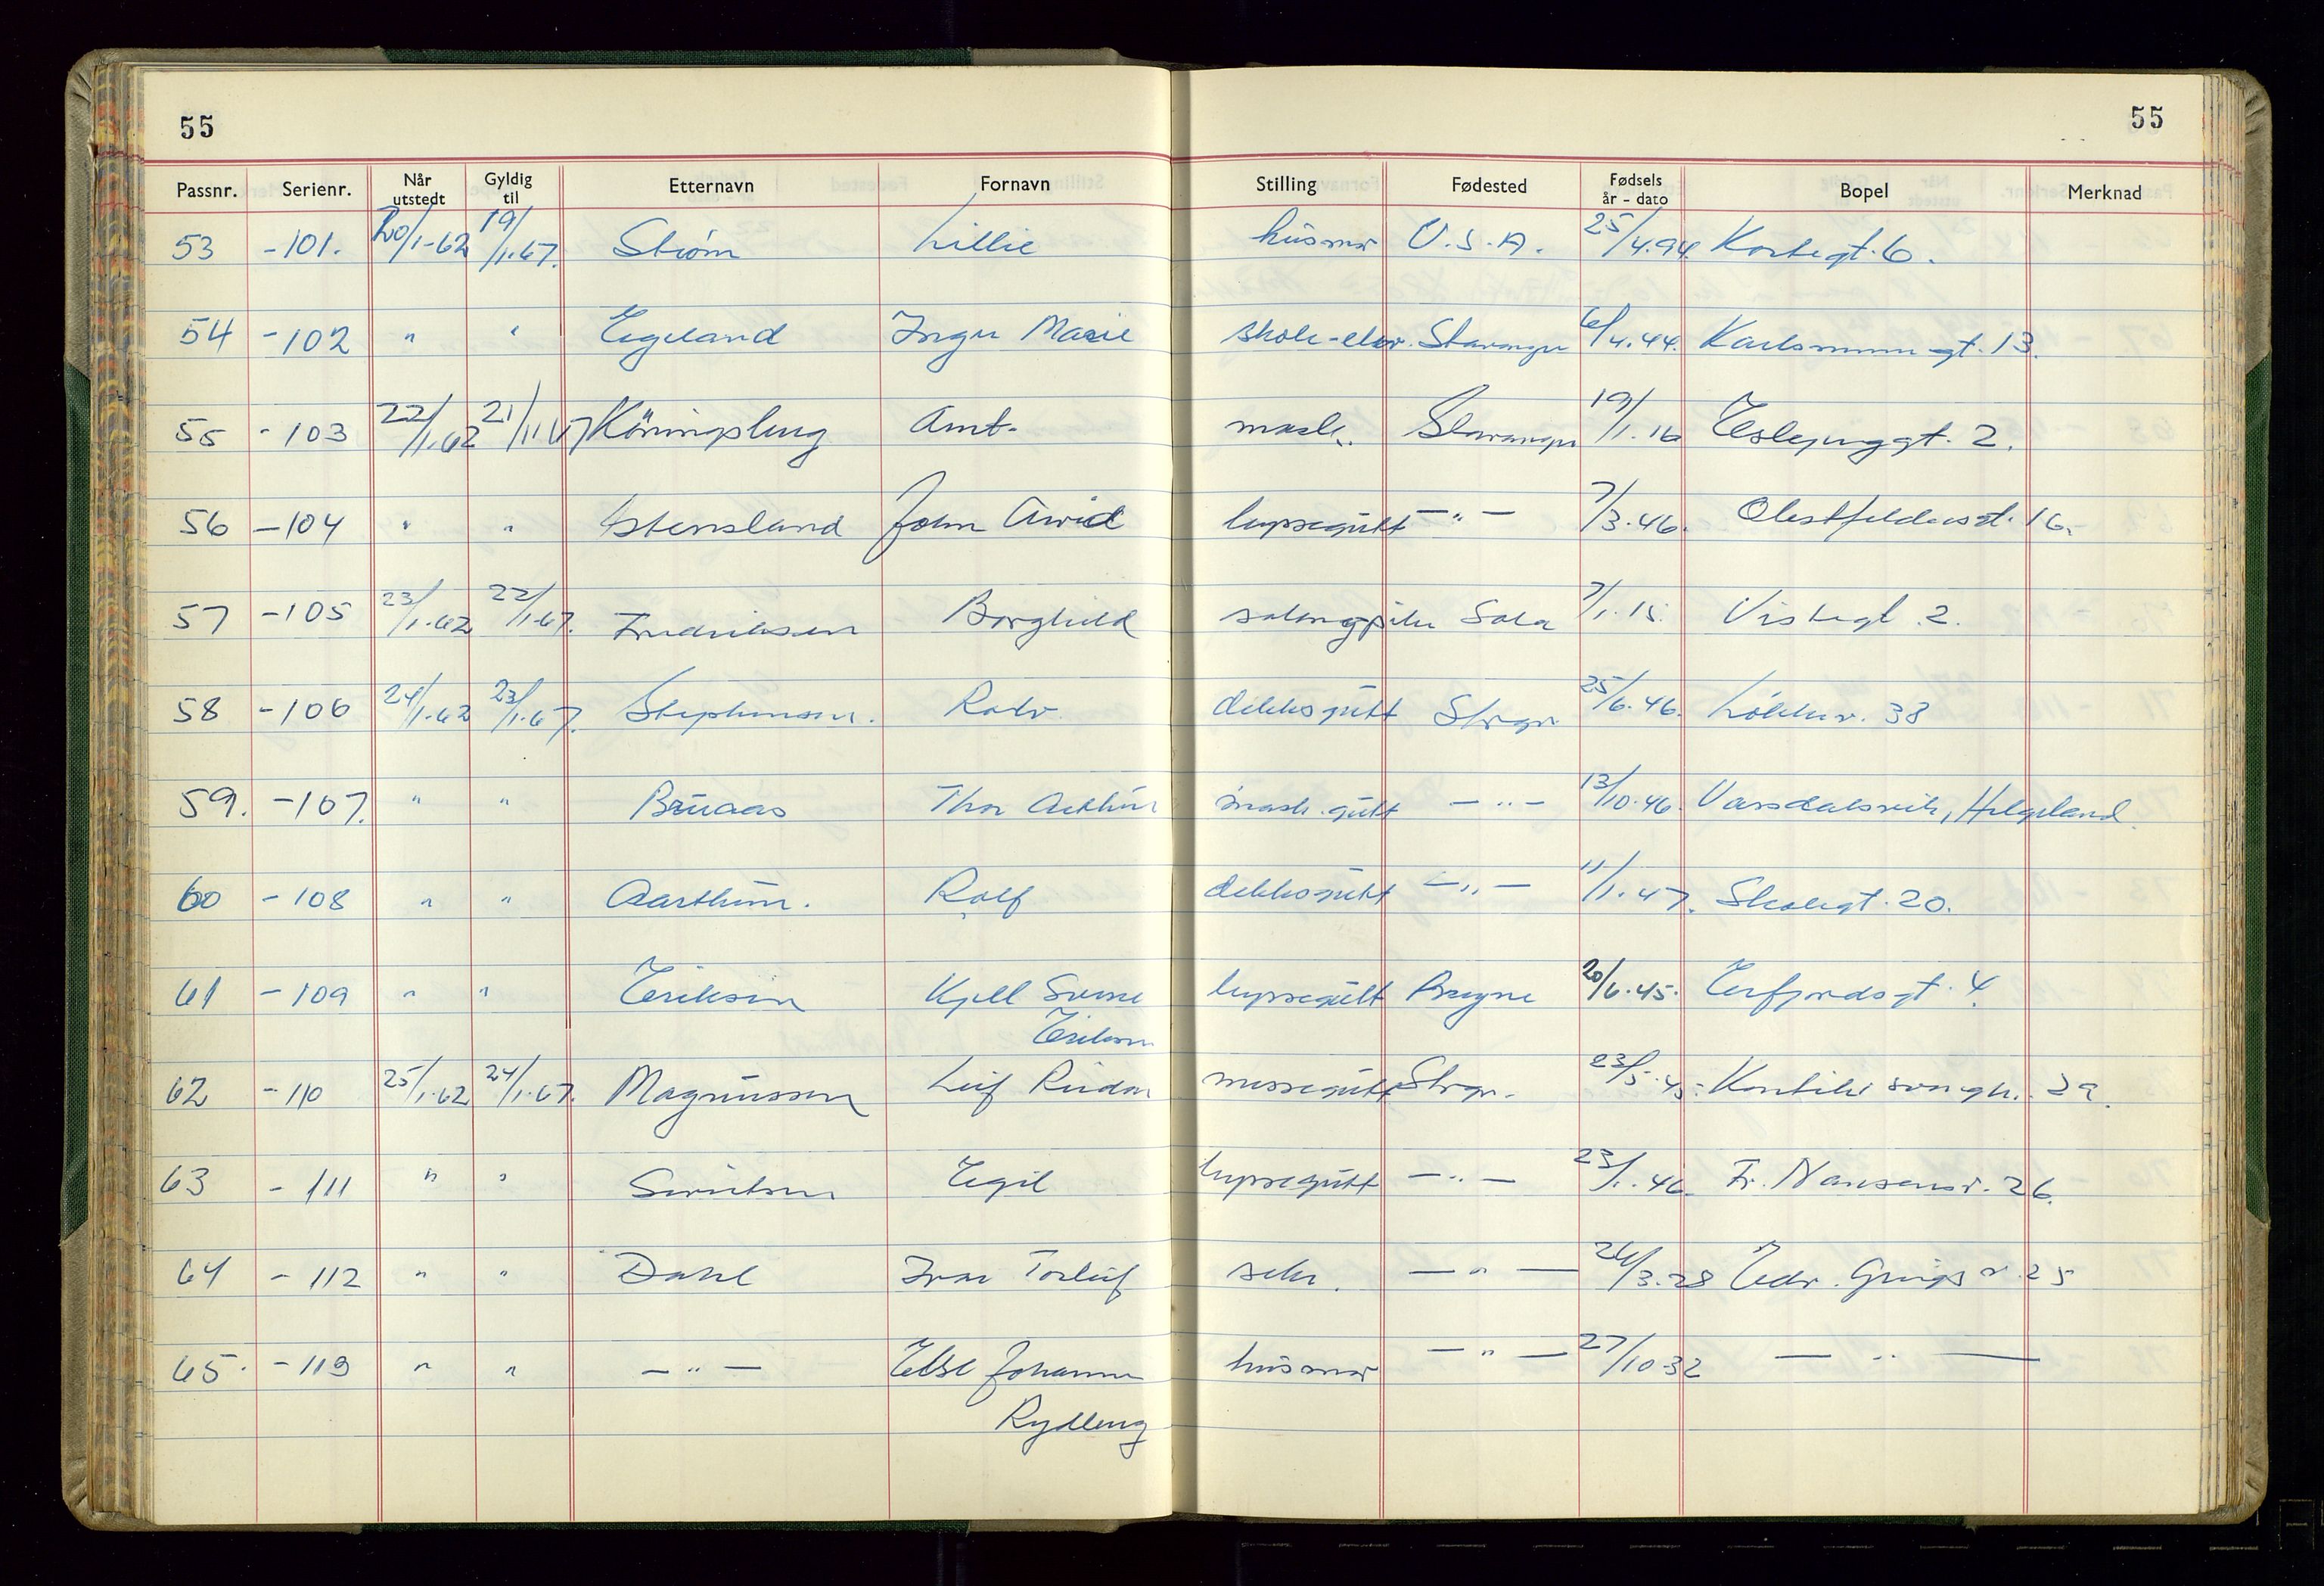 55 55
Passnr. Serienr. Når utstedt Gyldig til Etternavn Fornavn Stilling Fødested Fødsels år - dato Bopel Merknad
53 -101. 20/1-62 19/1.67. Strøm Lillie husmor U.S.A. 25/4.94. Kortegt. 6.
54 -102 " " Eigeland Inger Marie skole-elev. Stavanger 6/4.44. Karlsminnegt. 13.
55 -103 22/1.62 21/1.67 Köningsberg Arnt. mask. Stavanger 19/1.16 2.
56 -104 " " Stensland John Arvid byssegutt -"- 7/3.46. Obstfeldersgt. 16.
57 -105 23/1.62 22/1.67. Fredriksen Borghild salongpike Sola 7/1.15. Vistegt. 2.
58 -106 24/1.62 23/1.67. Stephensen. dekksgutt Stvgr 25/6.46. Løkkev. 38
59. -107. " " Bruaas Thor Arthur mask.gutt -"- 13/10.46. Helgeland.
60 -108 " " Aarthun. Rolf dekksgutt -"- 11/1.47. Skolegt. 20.
61 -109 " " Eriksen Kjell Sverre byssegutt Bryne 20/6.45. Erfjordsgt. 4.
Eriksen
62 -110 25/1.62 24/1.67. Magnussen Leif Reidar messegutt Stvgr. 23/5.45. Kontiki
63 -111 " " Sivertsen Egil byssegutt -"- 23/1.46. Fr. Nansensv. 26.
64 -112 " " Dahl Ivar Torleif sekr. -"- 26/3.28 Edv. Griegs v. 25
65. -113 " " -"- Else Johanne husmor -"- 27/10 32 -"-
Rydberg